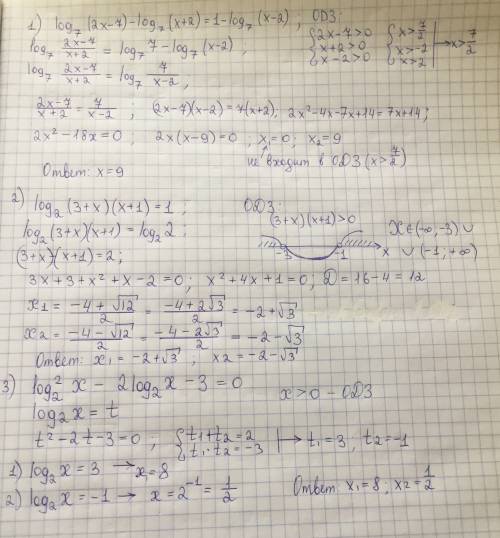 1) log₇(2x-7)-log₇(x+2)=1-log₇(x-2); ОДЗ:
log₇ (2x-7)/(x+2) = log₇7-log₇(x-2), {2x-7>0 {x>7/2
x+2>0 x>-2 ⟼x>7/2
log₇ (2x-7)/(x+2) = log₇ 7/(x-2), x-2>0 x>2
(2x-7)/(x+2) = 7/(x-2); (2x-7)(x-2)=7(x+2), 2x²-4x-7x+14=7x+14;
2x²-18x=0; 2x(x-9)=0; x₁=0; x₂=9
↑
не входит в ОДЗ (x>7/2)
Ответ: x=9
2) log₂(3+x)(x+1)=1; ОДЗ:
log₂(3+x)(x+1)=log₂2; (3+x)(x+1)>0
(3+x)(x+1)=2; -3 -1 x X∈(-∞,-3)∪
∪(-1;+∞)
3x+3+x²+x-2=0; x²+4x+1=0; D=16-4=12
x1 = (-4+√12)/2 = (-4+2√3)/2 = -2+√3
x2 = (-4-√12)/2 = (-4-2√3)/2 = -2-√3
Ответ: x₁=-2+√3; x2=-2-√3
3) log₂²x-2log₂x-3=0 x>0-ОДЗ
log₂x=t
t²-2t-3=0; {t₁+t₂=2
t₁·t₂=-3 ⟼ t₁=3; t₂=-1
1) log₂x=3 → x₁=8
2) log₂x=-1 → x=2⁻¹=1/2 Ответ: x₁=8; x2=1/2